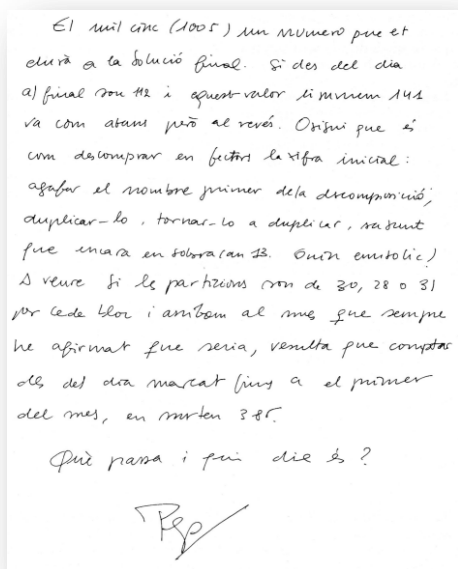 El mil cinc (1005) un número que et
durà a la solució final. Si des del dia
al final son 112 i aquest valor li summem 141
va com abans però al revés. Osigui que és
com descomprar en factors la xifra inicial:
agafar el nombre primer de la descomposició,
duplicar-lo, tornar-lo a duplicar, sabent
que encara en sobraran 13. Guin embolic!
A veure si les particions son de 30, 28 o 31
per cada bloc i arribem al mes que sempre
he afirmat que seria, resulta que comptar
des del dia marcat fins a el primer
del mes, en surten 385.
Què passa i quin dia és?
Pep